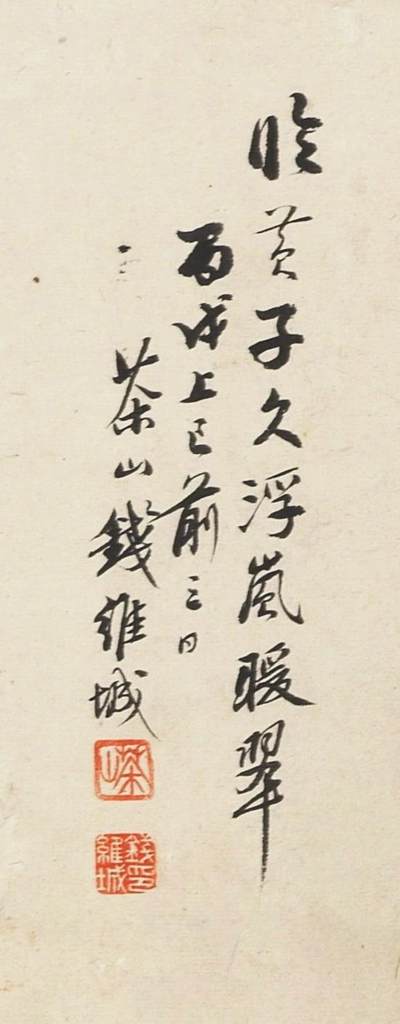 臨黃子久浮嵐暖翠
丙戌上巳前三日
茶山錢維城
茶山
錢維城印